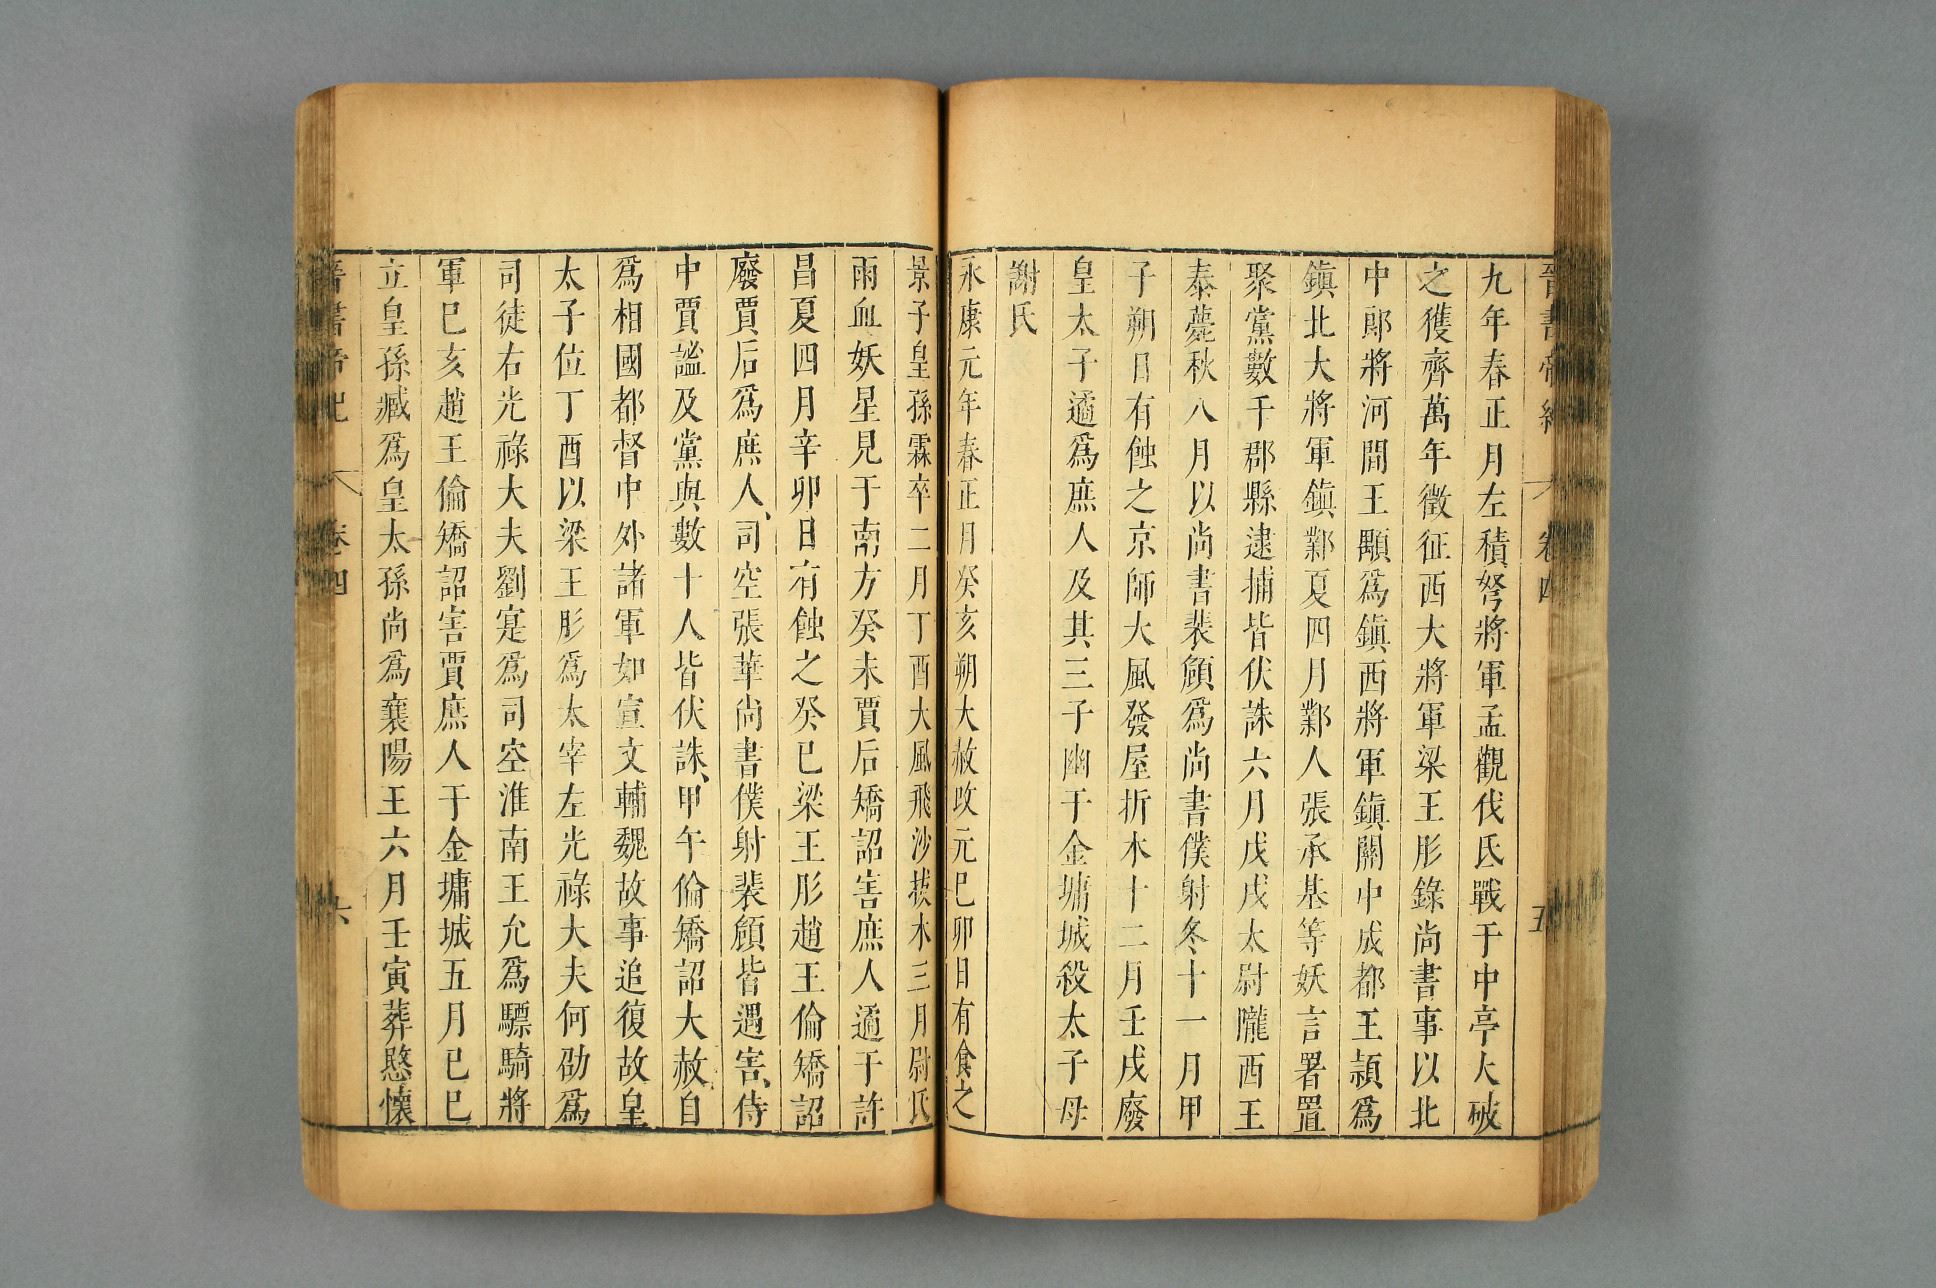 晉書帝紀 卷四 五
九年春正月左積弩將軍孟觀伐氐戰于中亭大破
之獲齊萬年徵征西大將軍梁王肜錄尚書事以北
中郎將河間王顒爲鎮西將軍鎮關中成都王潁爲
鎮北大將軍鎮鄴夏四月鄴人張承基等妖言署置
聚黨數千郡縣逮捕皆伏誅六月戊戌太尉隴西王
泰薨秋八月以尚書裴頠爲尚書僕射冬十一月甲
子朔日有蝕之京師大風發屋折木十二月壬戌廢
皇太子遹爲庶人及其三子幽于金墉城殺太子母
謝氏
永康元年春正月癸亥朔大赦改元己卯日有食之
景子皇孫霖卒二月丁酉大風飛沙拔木三月尉氏
雨血妖星見于南方癸未賈后矯詔害庶人遹于許
昌夏四月辛卯日有蝕之癸巳梁王肜趙王倫矯詔
廢賈后爲庶人、司空張華尚書僕射裴頠皆遇害、侍
中賈謐及黨與數十人皆伏誅、甲午倫矯詔大赦、自
爲相國都督中外諸軍如宣文輔魏故事追復故皇
太子位丁酉以梁王肜爲太宰左光祿大夫何劭爲
司徒右光祿大夫劉寔爲司空淮南王允爲驃騎將
軍己亥趙王倫矯詔害賈庶人于金墉城五月己巳
立皇孫臧爲皇太孫尚爲襄陽王六月壬寅葬愍懷
晉書帝紀 卷四 六